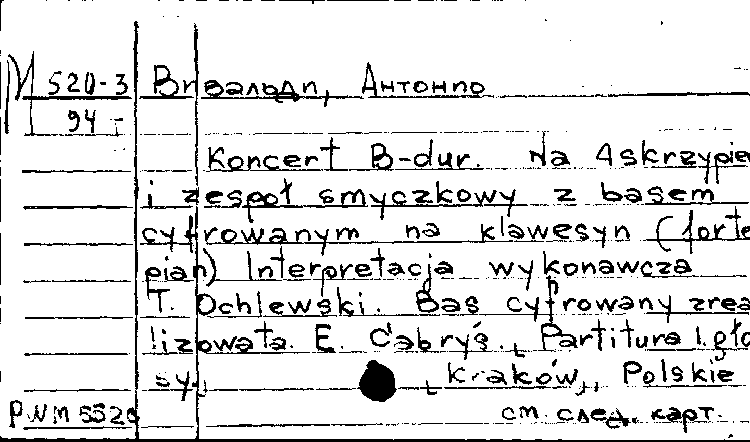 М 520-3 Вивальди, Антонио
94
Koncert B-dur. Na 4 skrzypie
i zespoł smyczkowy z basem
cyfrowanym na klawesyn (forte
pian) Interpretacja wykonawcza
T. Ochlewski. Bas cyfrowany zrea
lizowała E. Gabryś. Partitura i gło
sy. Kraków, Polskie
PWM 5520 см. след. карт.